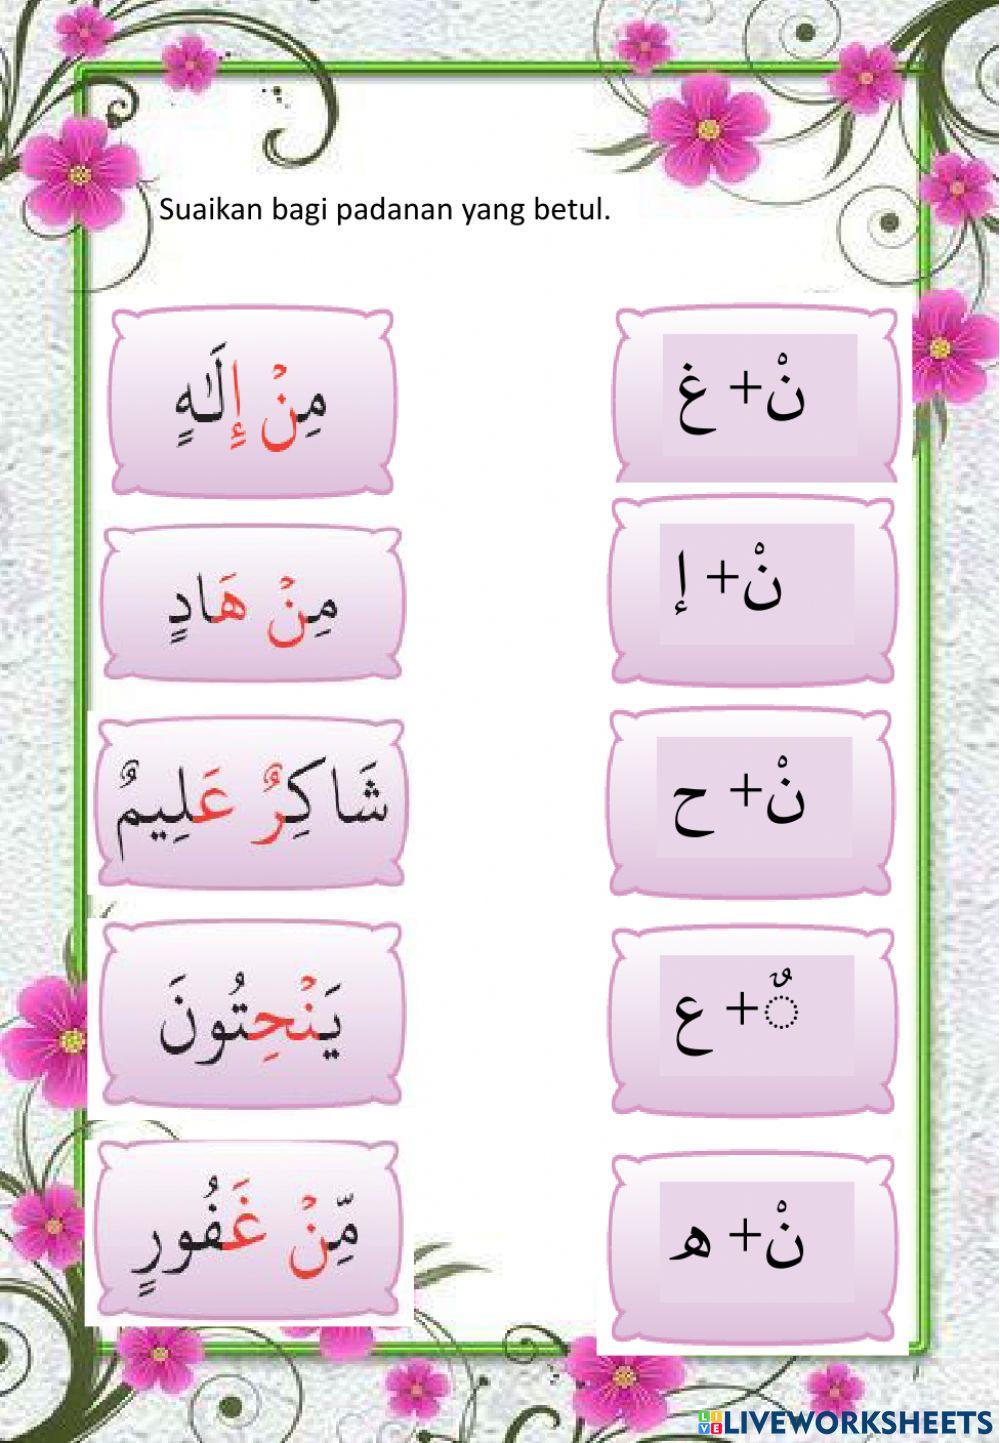 Suaikan bagi padanan yang betul.
مِنۡ إِلَـٰهٍ
نْ+ غ
مِنۡ هَادٍ
نْ+ إ
شَاكِرٌ عَلِيمٌ
نْ+ ح
يَنۡحِتُونَ
◌ٌ+ ع
مِّنۡ غَفُورٍ
نْ+ ه
LIVEWORKSHEETS